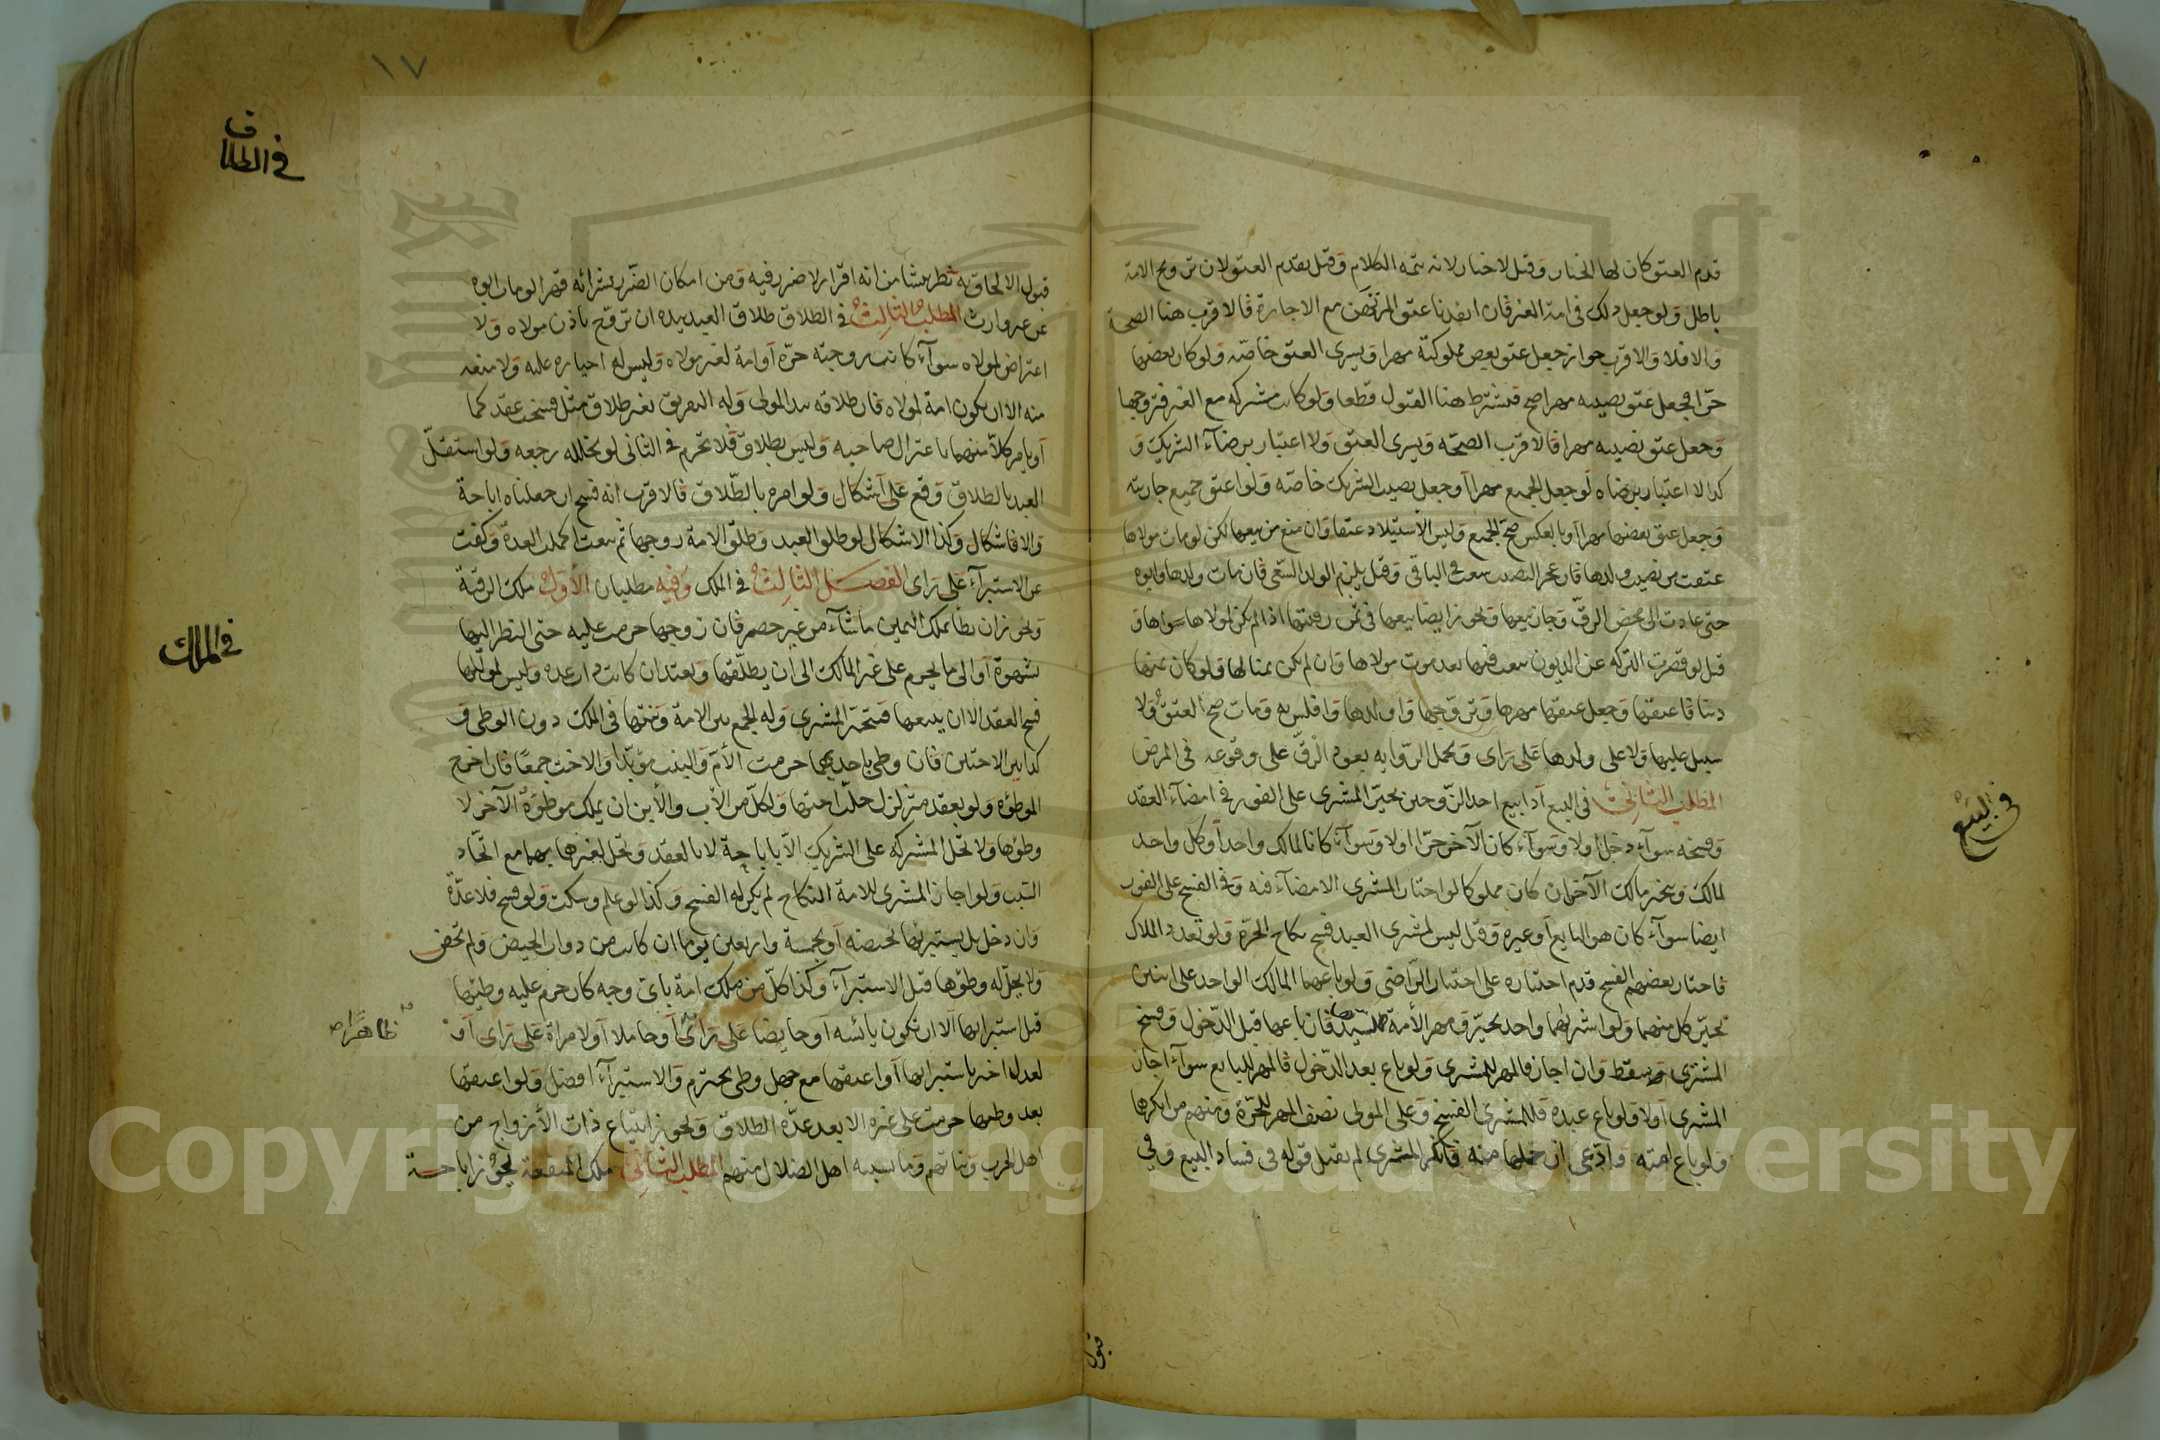 قدم العتق كان لها الخيار وقيل لا خيار لانه تتمة الكلام وقيل يقدم العتق لان تزويج الامة
باطل ولو جعل ذلك في امة الغير فان انفذنا عتق المرتهن مع الاجازة فالاقرب هنا الصحة
والا فلا والاقرب جواز جعل عتق بعض مملوكته مهرا ويسري العتق خاصة ولو كان بعضها
حرا فجعل عتق نصيبه مهرا صح فيشترط هنا القبول قطعا ولو كانت مشتركة مع الغير فتزوجها
وجعل عتق نصيبه مهرا فالاقرب الصحة ويسري العتق ولا اعتبار برضآء الشريك و
كذا لا اعتبار برضاه لو جعل الجميع مهرا او جعل نصيب الشريك خاصة ولو اعتق جميع جاريته
وجعل عتق بعضها مهرا او بالعكس صح الجميع وليس الاستيلاد عتقا وان منع من بيعها لكن لو مات مولاها
عتقت من نصيب ولدها فان عجز النصيب سعت في الباقي وقيل يلزم الولد السعي فان مات ولدها وابوه
حي عادت الى محض الرق وجاز بيعها ويجوز ايضا بيعها في ثمن رقبتها اذا لم يكن لمولاها سواها و
قيل لو قصرت التركة عن الديون بيعت فيها بعد موت مولاها وان لم يكن ثمنا لها ولو كان ثمنها
دينا فاعتقها وجعل عتقها مهرها وتزوجها واولدها وافلس به ومات صح العتق ولا
سبيل عليها ولا على ولدها على راى وتحمل الرواية بعود الرق على وقوعه في المرض
المطلب الثاني في البيع اذا بيع احد الزوجين تخير المشتري على الفور في امضآء العقد
وفسخه سوآء دخل اولا وسوآء كان الآخر حرا اولا وسوآء كانا لمالك واحد او كل واحد
لمالك ويتخير مالك الآخر ان كان مملوكا لو اختار المشتري الامضآء فيه وفي الفسخ على الفور
ايضا سوآء كان هو البايع او غيره وقيل ليس لمشتري العبد فسخ نكاح الحرة ولو تعدد الملاك
فاختار بعضهم الفسخ قدم اختياره على اختيار الراضي ولو باعهما المالك الواحد على اثنين
تخير كل منهما ولو اشتراهما واحد تخير ومهر الامة للسيد فان باعها قبل الدخول وفسخ
المشتري سقط وان اجاز فالمهر للمشتري ولو باع بعد الدخول فالمهر للبايع سوآء اجاز
المشتري اولا ولو باع عبده فللمشتري الفسخ وعلى المولى نصف المهر للحرة ومنهم من انكرها
ولو باع امته وادعى ان حملها منه فانكر المشتري لم يقبل قوله في فساد البيع وفي
قبول
في البيع
١٧
قبول الالحاق به نظر ينشا من انه اقرار لا ضرر فيه ومن امكان الضرر بشرائه قهرا لو مات ابوه
عن غير وارث المطلب الثالث في الطلاق طلاق العبد بيده ان تزوج باذن مولاه ولا
اعتراض لمولاه سوآء كانت زوجته حرة او امة لغير مولاه وليس له اجباره عليه ولا منعه
منه الا ان يكون امة لمولاه فان طلاقه بيد المولى وله التفريق بغير طلاق مثل فسخت عقدكما
او يامر كلا منهما باعتزال صاحبه وليس بطلاق فلا تحرم في الثاني لو تخلله رجعة ولو استقل
العبد بالطلاق وقع على اشكال ولو امره بالطلاق فالاقرب انه فسخ ان جعلناه اباحة
والا فاشكال وكذا الاشكال لو طلق العبد ولو طلق الامة زوجها ثم بيعت اكملت العدة وكفت
عن الاستبرآء على راى الفصل الثالث في الملك وفيه مطلبان الاول ملك الرقبة
ويجوز ان يطأ بملك اليمين ما شآء من غير حصر فان زوجها حرمت عليه حتى النظر اليها
بشهوة او الى ما يحرم على غير المالك الى ان يطلقها وتعتد ان كانت ذات عدة وليس لمولاها
فسخ العقد الا ان يبيعها فيتخير المشتري وله الجمع بين الامة وبنتها في الملك دون الوطى و
كذا بين الاختين فان وطى باحديهما حرمت الأم والبنت مؤبدا والاخت جمعا فان اخرج
الموطؤة ولو بعقد متزلزل حلت اختها ولكل من الأب والأبن ان يملك موطوة الآخر لا
وطؤها ولا تحل المشتركة على الشريك الا باباحة لا بالعقد وتحل لغيرهما بهما مع اتحاد
السبب ولو اجاز المشتري للامة النكاح لم يكن له الفسخ وكذا لو علم وسكت ولو فسخ فلا عدة
وان دخل بل يستبرئها بحيضة او بخمسة واربعين يوما ان كانت من ذوات الحيض ولم تحض
ولا يحل له وطؤها قبل الاستبرآء وكذا كل من ملك امة باى وجه كان حرم عليه وطيها
قبل استبرائها الا ان تكون يائسة او حايضا على راى او حاملا او لامراة على راى او
لعدل اخبر باستبرائها او اعتقها مع جهل وطى محترم والاستبرآء افضل ولو اعتقها
بعد وطئها حرمت على غيره الا بعد عدة الطلاق ويجوز ابتياع ذات الأزواج من
اهل الحرب وبناتهم وما يسبيه اهل الضلال منهم المطلب الثاني ملك المنفعة يجوز اباحة
في الطلاق
في الملك
ظاهرا
Copyright © King Saud University